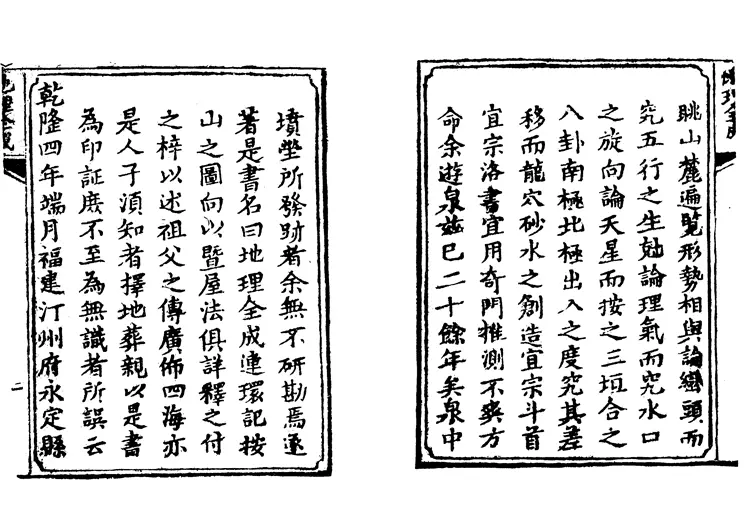 眺山麓遍覧形勢相與論巒頭而
究五行之生尅論理氣而究水口
之旋向論天星而按之三垣合之
八卦南極北極出入之度究其差
移而龍穴砂水之創造宜宗斗首
宜宗洛書宜用奇門推測不爽方
命余遊泉茲已二十餘年矣泉中
墳塋所發跡者余無不研勘焉遂
著是書名曰地理全成連環記按
山之圖向以暨屋法俱詳釋之付
之梓以述祖父之傳廣佈四海亦
是人子湏知者擇地葬親以是書
為印証庶不至為無識者所誤云
乾隆四年端月福建汀州府永定縣
二